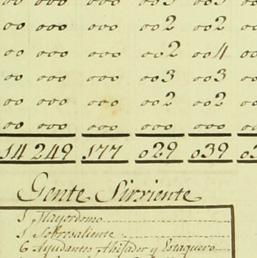 ooo ooo ooo oo2 oo2
ooo ooo ooo oo2 oo4
ooo ooo ooo oo3 oo3
ooo ooo ooo oo2 oo2
ooo ooo ooo ooo ooo
14 249 177 o29 o39
Gente Sirviente
1 Mayordomo
1 Sobresaliente
6 Ayudantes Ahijador y Estaquero